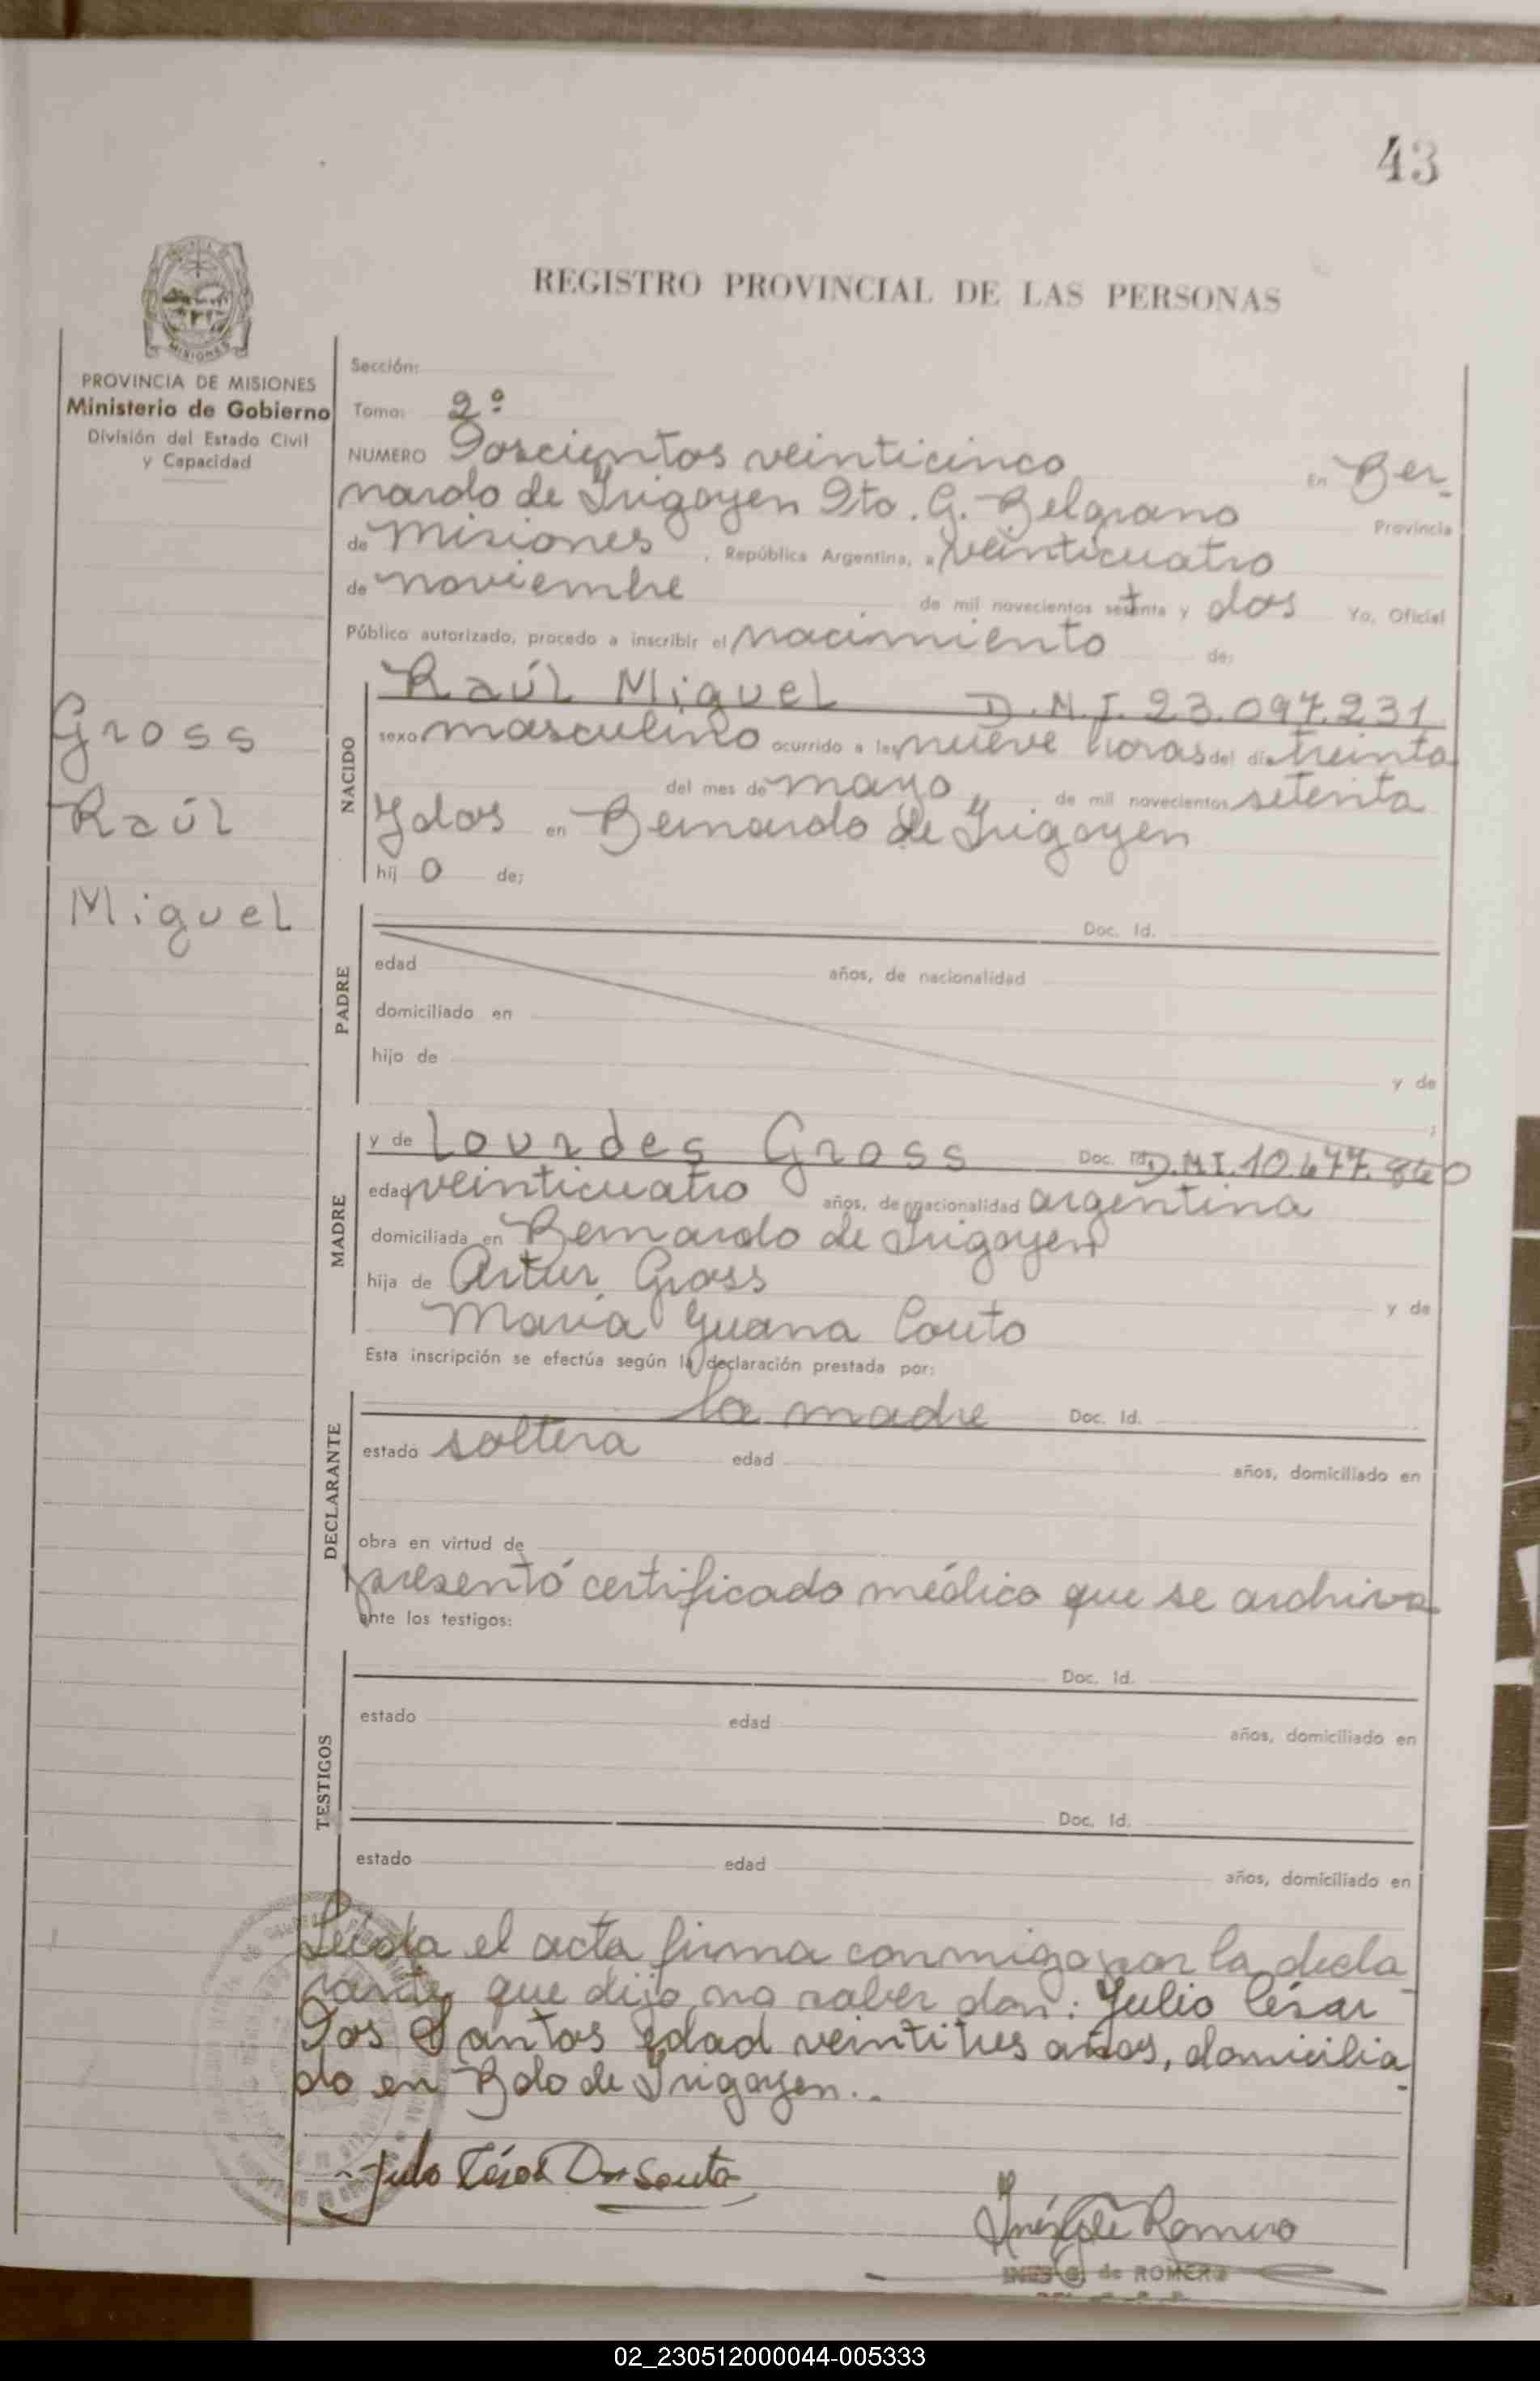 43
REGISTRO PROVINCIAL DE LAS PERSONAS
MISIONES
PROVINCIA DE MISIONES
Ministerio de Gobierno
División del Estado Civil
y Capacidad
Gross
Raúl
Miguel
Sección:
Tomo: 2º
NUMERO Doscientos veinticinco En Ber-
nardo de Irigoyen Dto. G. Belgrano Provincia
de Misiones, República Argentina, a veinticuatro
de noviembre de mil novecientos setenta y dos Yo, Oficial
Público autorizado, procedo a inscribir el nacimiento de:
NACIDO
Raúl Miguel D.N.I. 23.097.231
sexo masculino ocurrido a las nueve horas del día treinta
del mes de mayo de mil novecientos setenta
y dos en Bernardo de Irigoyen
hij o de;
PADRE
Doc. Id.
edad años, de nacionalidad
domiciliado en
hijo de y de
;
MADRE
y de Lourdes Gross Doc. Id. D.N.I. 10.677.840
edad veinticuatro años, de nacionalidad argentina
domiciliada en Bernardo de Irigoyen
hija de Artur Gross y de
María Juana Couto
Esta inscripción se efectúa según la declaración prestada por:
DECLARANTE
la madre Doc. Id.
estado soltera edad años, domiciliado en
obra en virtud de
presentó certificado médico que se archiva
ante los testigos:
TESTIGOS
Doc. Id.
estado edad años, domiciliado en
Doc. Id.
estado edad años, domiciliado en
Leída el acta firma conmigo por la decla-
rante que dijo no saber don: Julio César
Dos Santos edad veintitres años, domicilia-
do en Bdo de Irigoyen..
Julio César Dos Santos
Inés G de Romero
INES G. de ROMERO
02_230512000044-005333